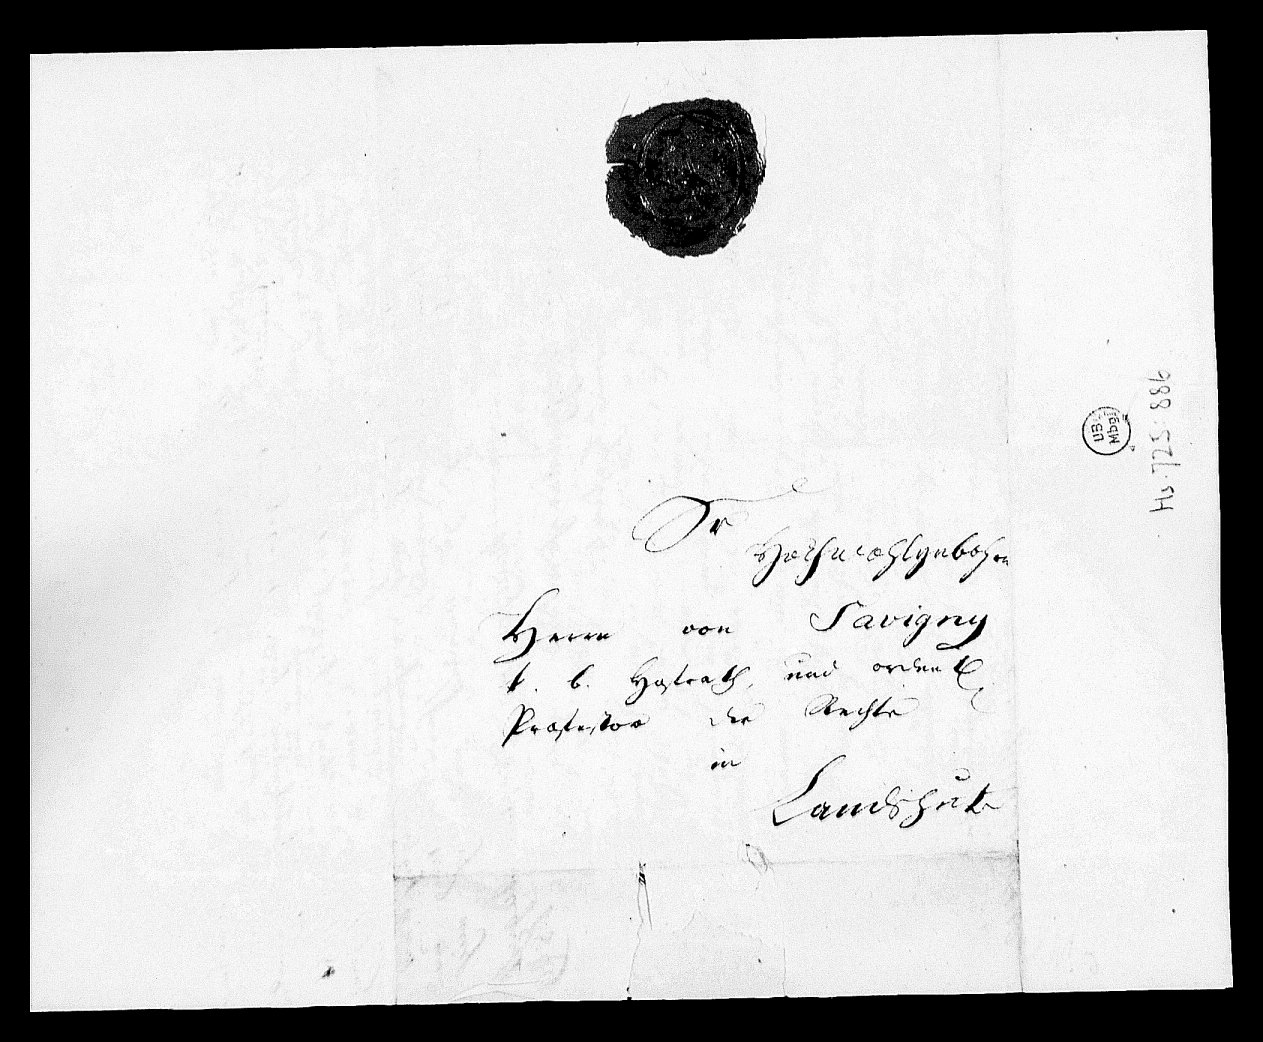 Sr
Hochwohlgebohren
Herrn von Savigny
k. b. Hofrath, und ordentl
Professor der Rechte
in
Landshut
Hs. 725:886
UB
Mbg